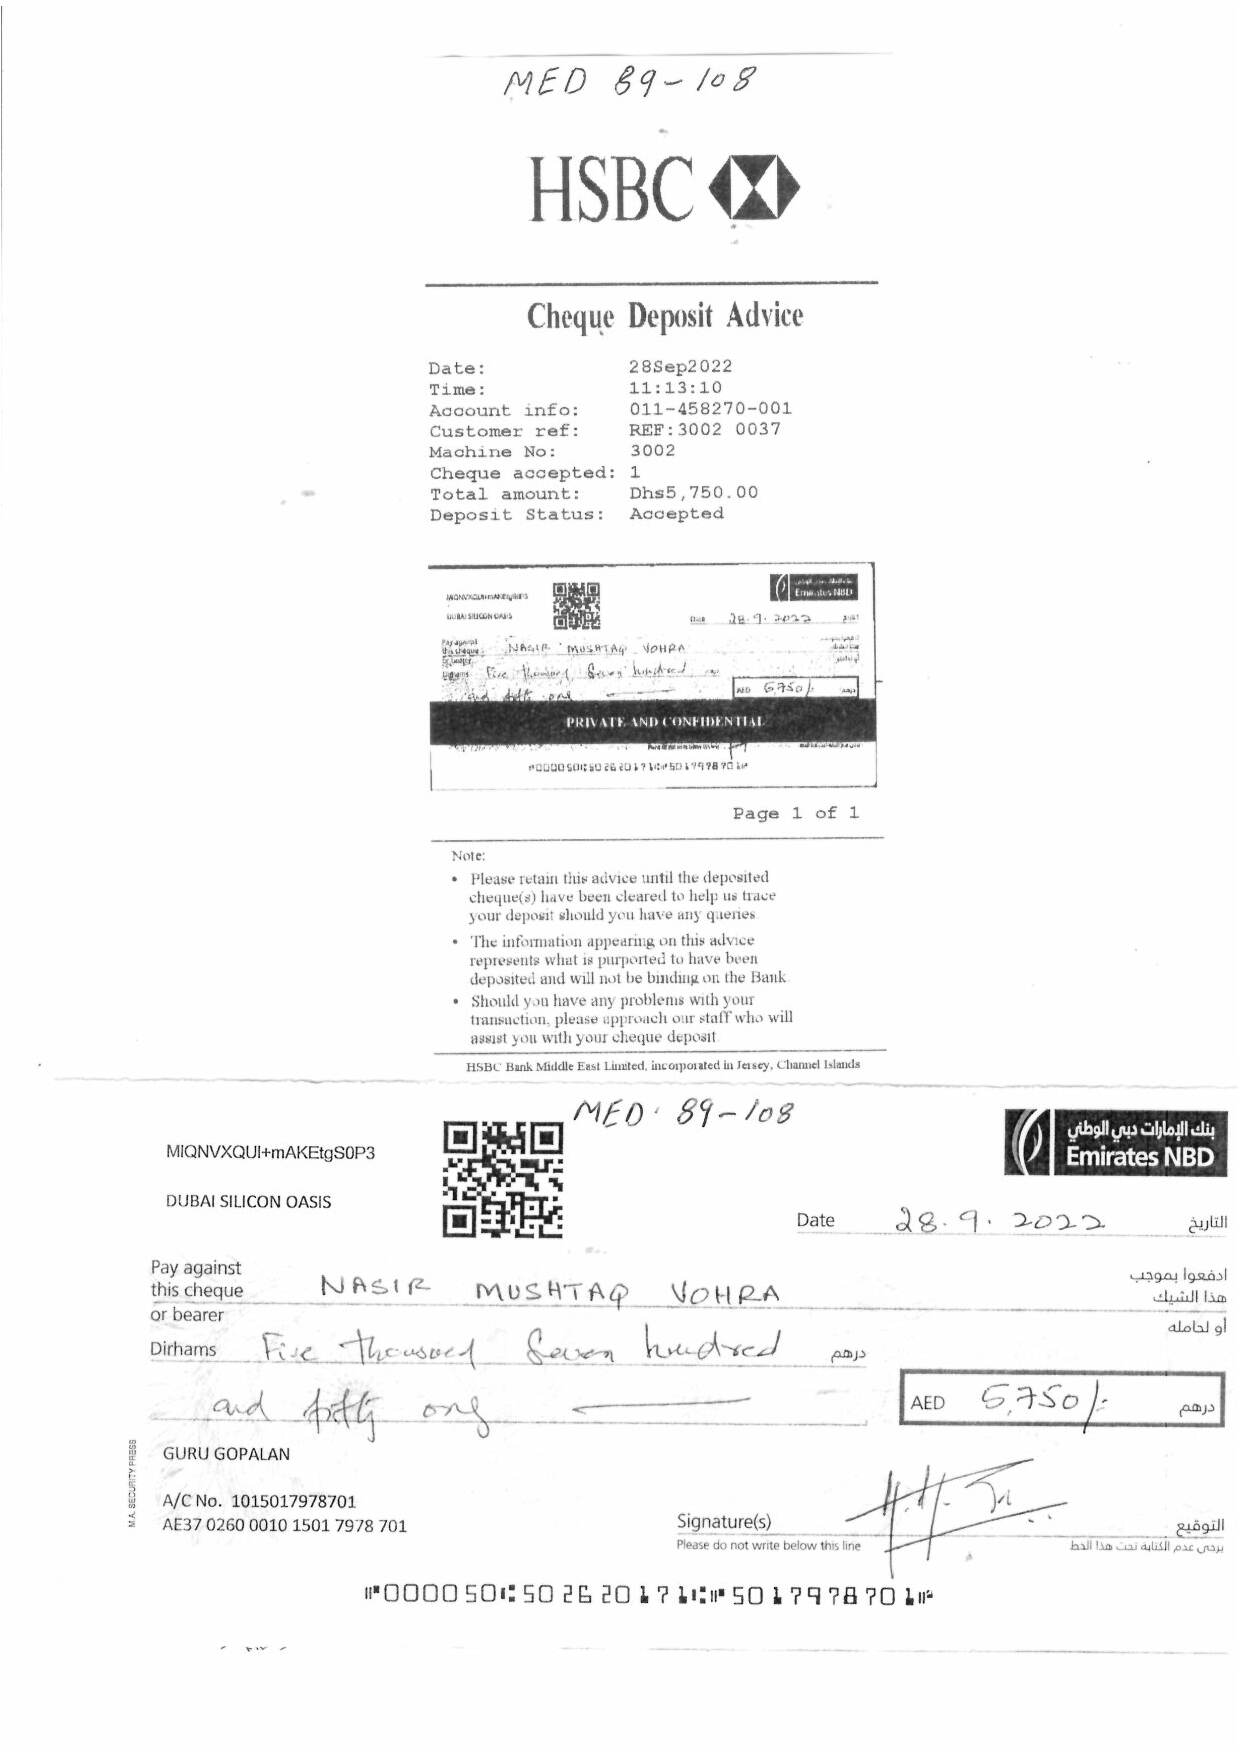 MED 89-108
HSBC
Cheque Deposit Advice
Date: 28Sep2022
Time: 11:13:10
Account info: 011-458270-001
Customer ref: REF:3002 0037
Machine No: 3002
Cheque accepted: 1
Total amount: Dhs5,750.00
Deposit Status: Accepted
Emirates NBD
DUBAI SILICON OASIS
Date 28.9.2022
Pay against
this cheque NASIR MUSHTAQ VOHRA
or bearer
Dirhams Five thousand Seven hundred
and fifty ong
AED 5,750/-
PRIVATE AND CONFIDENTIAL
"000050":502620171:"5017978701"
Page 1 of 1
Note:
• Please retain this advice until the deposited
cheque(s) have been cleared to help us trace
your deposit should you have any queries
• The information appearing on this advice
represents what is purported to have been
deposited and will not be binding on the Bank
• Should you have any problems with your
transaction, please approach our staff who will
assist you with your cheque deposit
HSBC Bank Middle East Limited, incorporated in Jersey, Channel Islands
MED. 89-108
MIQNVXQUI+mAKEtgS0P3
بنك الإمارات دبي الوطني
Emirates NBD
DUBAI SILICON OASIS
Date 28.9.2022 التاريخ
Pay against ادفعوا بموجب
this cheque NASIR MUSHTAQ VOHRA هذا الشيك
or bearer أو لحامله
Dirhams Five thousand Seven hundred درهم
and fifty ong
AED 5,750/- درهم
GURU GOPALAN
A/C No. 1015017978701
AE37 0260 0010 1501 7978 701
M.A. SECURITY PRESS
Signature(s) التوقيع
Please do not write below this line يرجى عدم الكتابة تحت هذا الخط
"000050":502620171:"5017978701"